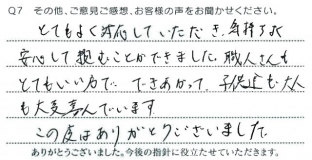 Q7 その他、ご意見ご感想、お客様の声をお聞かせください。
とてもよく対応していただき、気持よく
安心して頼むことができました。職人さんも
とてもいい方で、できあがって、子供達も大人
も大変喜んでいます
この度はありがとうございました。
ありがとうございました。今後の指針に役立たせていただきます。